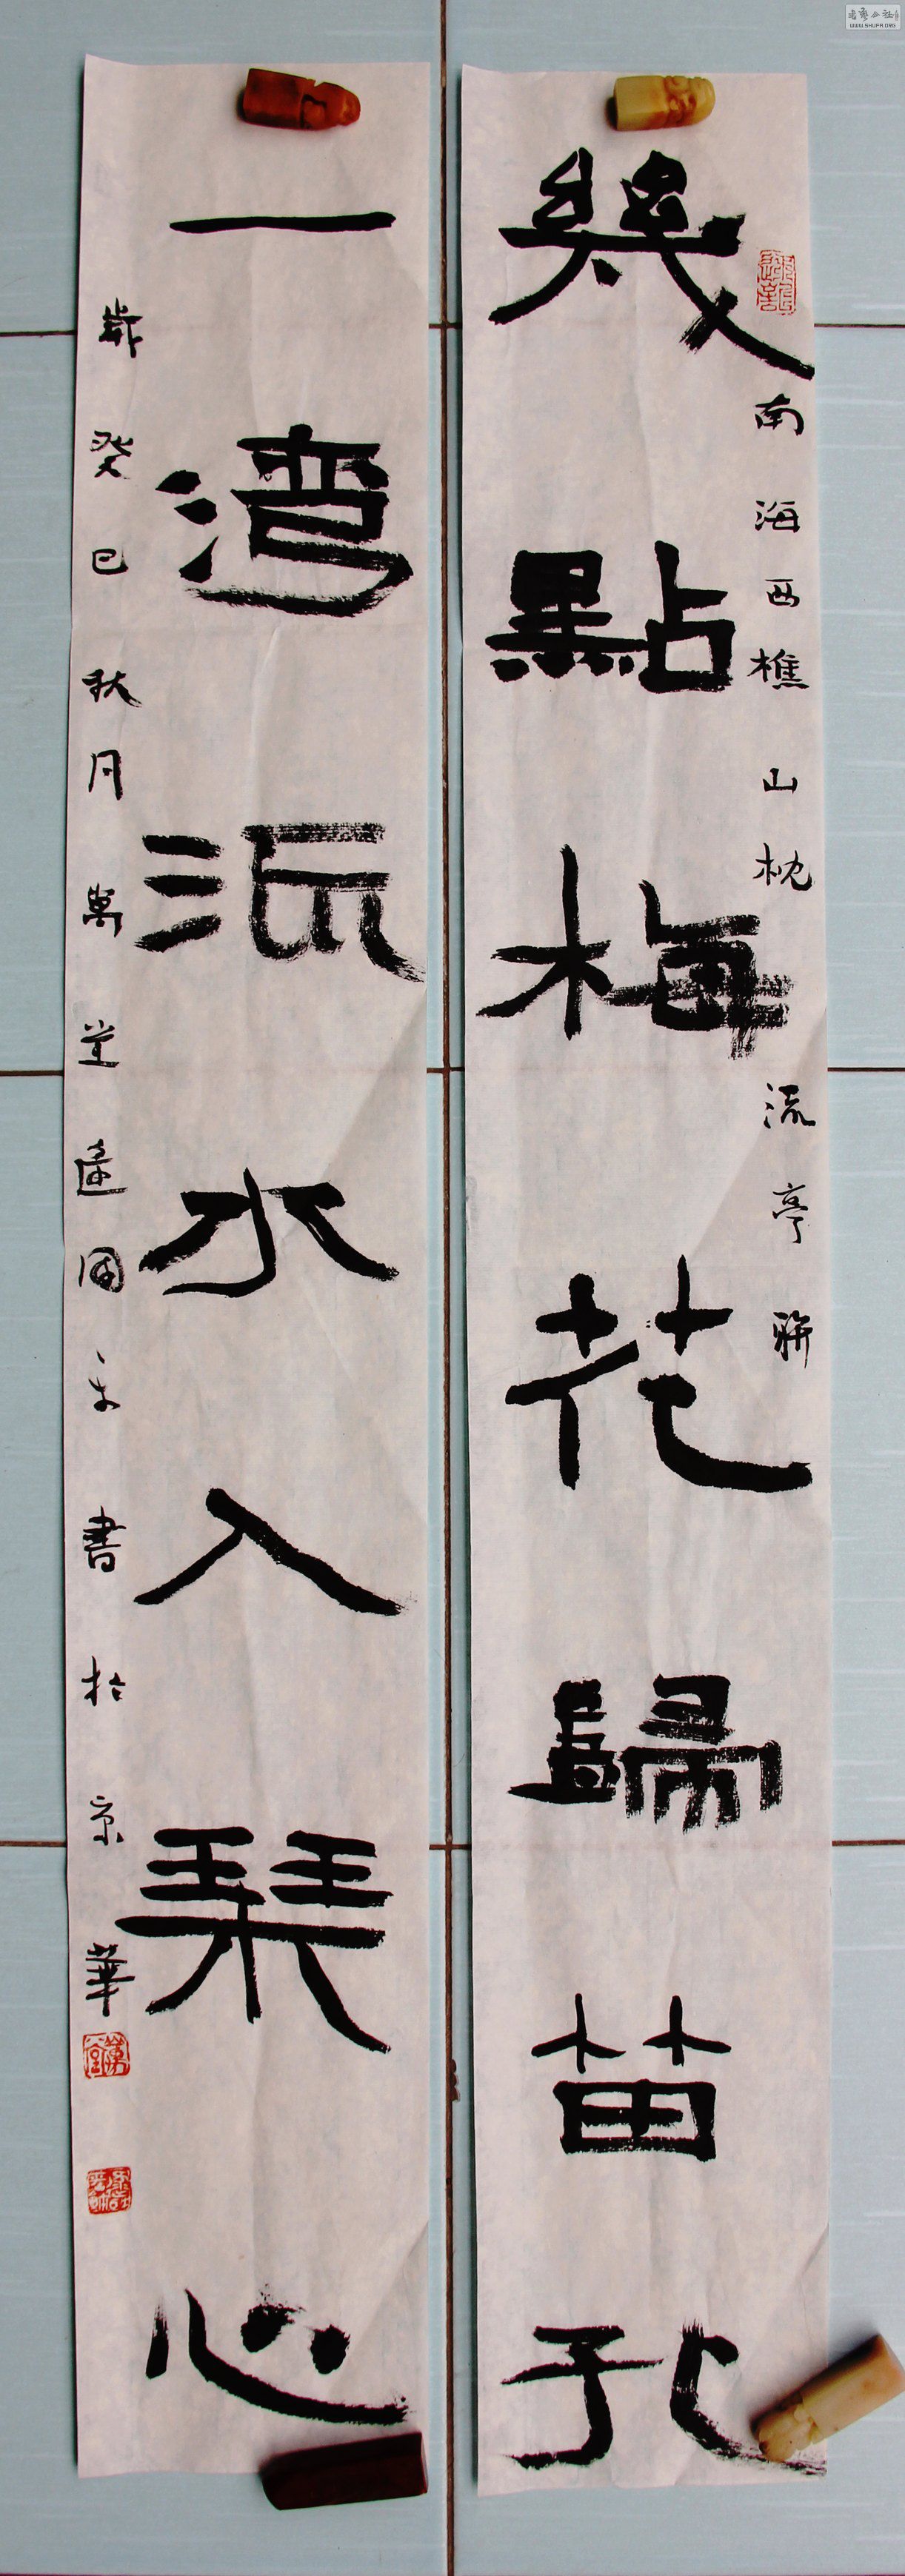 幾點梅花歸笛孔
南海西樵山枕流亭聯
一灣流水入琴心
歲癸巳秋月萬堂逢國書於京華
萬堂
書藝公社
WWW.SHUFA.ORG